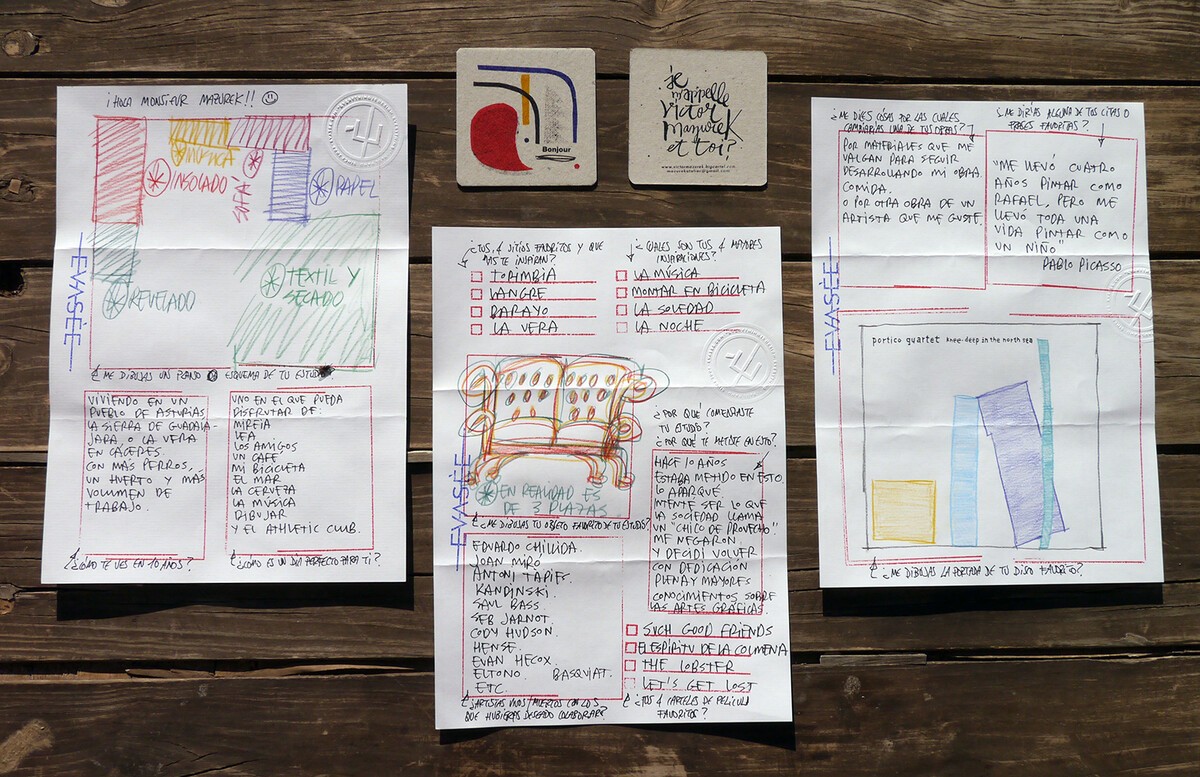 ¡HOLA MONSIEUR MAZUREK!!
MÚSICA
INSOLADO
SOFÁ
PAPEL
REVELADO
TEXTIL Y
SECADO
EVASÉE
¿ME DIBUJAS UN PLANO O ESQUEMA DE TU ESTUDIO?
VIVIENDO EN UN
PUEBLO DE ASTURIAS
LA SIERRA DE GUADALA-
JARA, O LA VERA
EN CÁCERES.
CON MÁS PERROS,
UN HUERTO Y MÁS
VOLUMEN DE
TRABAJO.
¿CÓMO TE VES EN 10 AÑOS?
UNO EN EL QUE PUEDA
DISFRUTAR DE:
MIREIA
LEA
LOS AMIGOS
UN CAFÉ
MI BICICLETA
EL MAR
LA CERVEZA
LA MÚSICA
DIBUJAR
Y EL ATHLETIC CLUB.
¿CÓMO ES UN DÍA PERFECTO PARA TI?
Bonjour
je
m'appelle
victor
mazurek
et toi?
www.victormazurek.bigcartel.com
mazurekatelier@gmail.com
¿TUS 4 SITIOS FAVORITOS Y QUE
MAS TE INSPIRAN?
TORIMBIA
LANGRE
BARAYO
LA VERA
¿CUALES SON TUS 4 MAYORES
INSPIRACIONES?
LA MÚSICA
MONTAR EN BICICLETA
LA SOLEDAD
LA NOCHE
EN REALIDAD ES
DE 3 PLAZAS.
EVASÉE
¿ME DIBUJAS TU OBJETO FAVORITO DE TU ESTUDIO?
¿POR QUÉ COMENZASTE
TU ESTUDIO?
¿POR QUÉ TE METISTE EN ESTO?
HACE 10 AÑOS
ESTABA METIDO EN ESTO.
LO APARQUÉ.
INTENTÉ SER LO QUE
LA SOCIEDAD LLAMA
UN "CHICO DE PROVECHO"
ME NEGARON
Y DECIDÍ VOLVER
CON DEDICACIÓN
PLENA Y MAYORES
CONOCIMIENTOS SOBRE
LAS ARTES GRÁFICAS
EDUARDO CHILLIDA.
JOAN MIRÓ
ANTONI TAPIES.
KANDINSKI.
SAUL BASS.
SEB JARNOT.
CODY HUDSON.
HENSE.
EVAN HECOX.
ELTONO. BASQUIAT.
ETC.
¿ARTISTAS VIVOS/MUERTOS CON LOS
QUE HUBIERAS DESEADO COLABORAR?
SUCH GOOD FRIENDS
EL ESPÍRITU DE LA COLMENA
THE LOBSTER
LET'S GET LOST
¿TUS 4 CARTELES DE PELÍCULA
FAVORITOS?
¿ME DICES COSAS POR LAS CUALES
CAMBIARÍAS UNA DE TUS OBRAS?
POR MATERIALES QUE ME
VALGAN PARA SEGUIR
DESARROLLANDO MI OBRA.
COMIDA.
O POR OTRA OBRA DE UN
ARTISTA QUE ME GUSTE.
¿ME DIRÍAS ALGUNA DE TUS CITAS O
FRASES FAVORITAS?
"ME LLEVÓ CUATRO
AÑOS PINTAR COMO
RAFAEL, PERO ME
LLEVÓ TODA UNA
VIDA PINTAR COMO
UN NIÑO"
PABLO PICASSO
EVASÉE
portico quartet knee-deep in the north sea
¿ME DIBUJAS LA PORTADA DE TU DISCO FAVORITO?